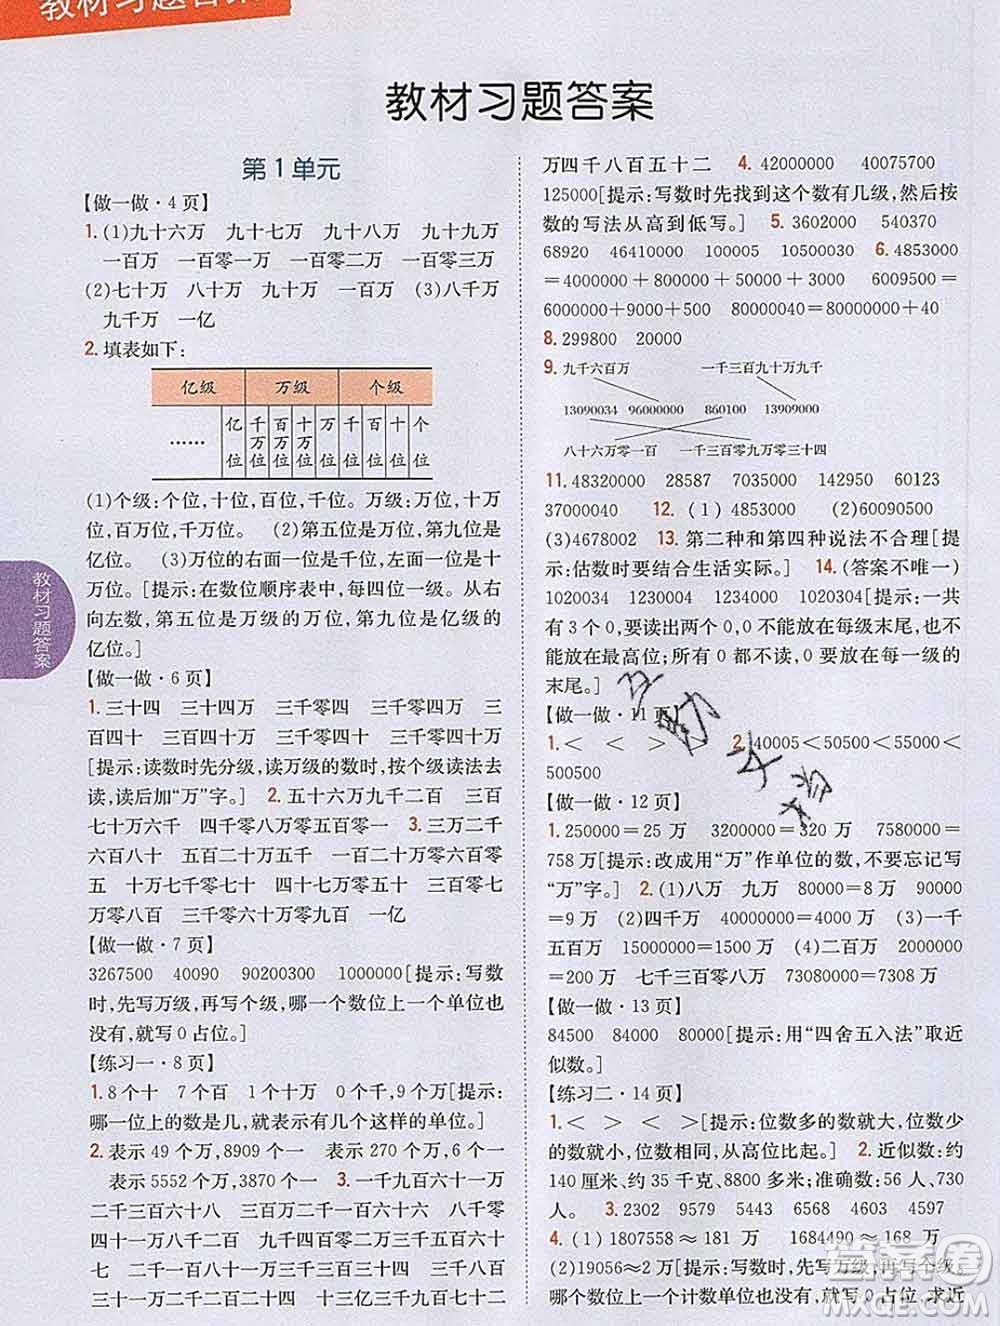 教材习题答案
教材习题答案
第1单元
【做一做·4页】
1.(1)九十六万 九十七万 九十八万 九十九万
一百万 一百零一万 一百零二万 一百零三万
(2)七十万 八十万 九十万 (3)八千万
九千万 一亿
2.填表如下:
亿级 万级 个级
…… 亿位 千万位 百万位 十万位 万位 千位 百位 十位 个位
(1)个级:个位,十位,百位,千位。万级:万位,十万
位,百万位,千万位。 (2)第五位是万位,第九位是
亿位。 (3)万位的右面一位是千位,左面一位是十
万位。[提示:在数位顺序表中,每四位一级。从右
向左数,第五位是万级的万位,第九位是亿级的
亿位。]
【做一做·6页】
1.三十四 三十四万 三千零四 三千零四万 三
百四十 三百四十万 三千四百 三千四百万
[提示:读数时先分级,读万级的数时,按个级读法去
读,读后加“万”字。] 2.五十六万九千二百 三百
七十万六千 四千零八万零五百零一 3.三万二千
六百八十 五百二十万七千 一千零六万零三百零
五 十万零七百七十 四千零七万八千 八百五十
万零八百 三千零六十万零九百 一亿
【做一做·7页】
3267500 40090 90200300 1000000[提示:写数
时,先写万级,再写个级,哪一个数位上一个单位也
没有,就写0占位。]
【练习一·8页】
1.8个十 7个百 1个十万 0个千,9个万[提示:
哪一位上的数是几,就表示有几个这样的单位。]
2.表示49个万,8909个一 表示270个万,6个一
表示5552个万,3870个一 3.一千九百六十一万
二千三百三十六 一千八百六十一万 八千零
四十一万八千二百 九千一百二十八万一千
八百三十三 一千二百七十九万零二百 八百
三十一万二千二百二十四 十三亿三千九百七十二
万四千八百五十二 4.42000000 40075000
125000[提示:写数时先找到这个数有几级,然后按
数的写法从高到低写。] 5.3602000 540370
68920 46410000 100005000 10500030 6.4853000
=4000000+800000+50000+3000 6009500=
6000000+9000+500 80000040=80000000+40
8.299800 20000
9.九千六百万 一千三百九十万九千
13090034 96000000 860100 13909000
八十六万零一百 一千三百零九万零三十四
11.48320000 28587 7035000 142950 60123
37000040 12.(1)4853000 (2)60090500
(3)4678002 13.第二种和第四种说法不合理[提
示:估数时要结合生活实际。] 14.(答案不唯一)
1020034 1230004 1234000 1020304[提示:一共
有3个0,要读出两个0,0不能放在每级末尾,也不
能放在最高位;所有0都不读,0要放在每一级的
末尾。]
【做一做·11页】
1.< < < > 2.40005<50500<55000<
500500
【做一做·12页】
1.250000=25万 3200000=320万 7580000=
758万[提示:改成用“万”作单位的数,不要忘记写
“万”字。] 2.(1)八万 九万 80000=8万 90000
=9万 (2)四千万 40000000=4000万 (3)一千
五百万 15000000=1500万 (4)二百万 2000000
=200万 七千三百零八万 73080000=7308万
【做一做·13页】
84500 84000 80000[提示:用“四舍五入法”取近
似数。]
【练习二·14页】
1.< > < >[提示:位数多的数就大,位数少
的数就小,位数相同,从高位比起。] 2.近似数:约
140厘米、约35千克、8800多米;准确数:56人、730
人。 3.2302 9579 5443 7500 6568 4890
4.(1)1807558≈181万 1684490≈168万
(2)19056≈2万[提示:写数时,先写万级,再写个级,
哪个数位上一个计数单位也没有,就写0占位。求近
答案圈
MXQE.COM